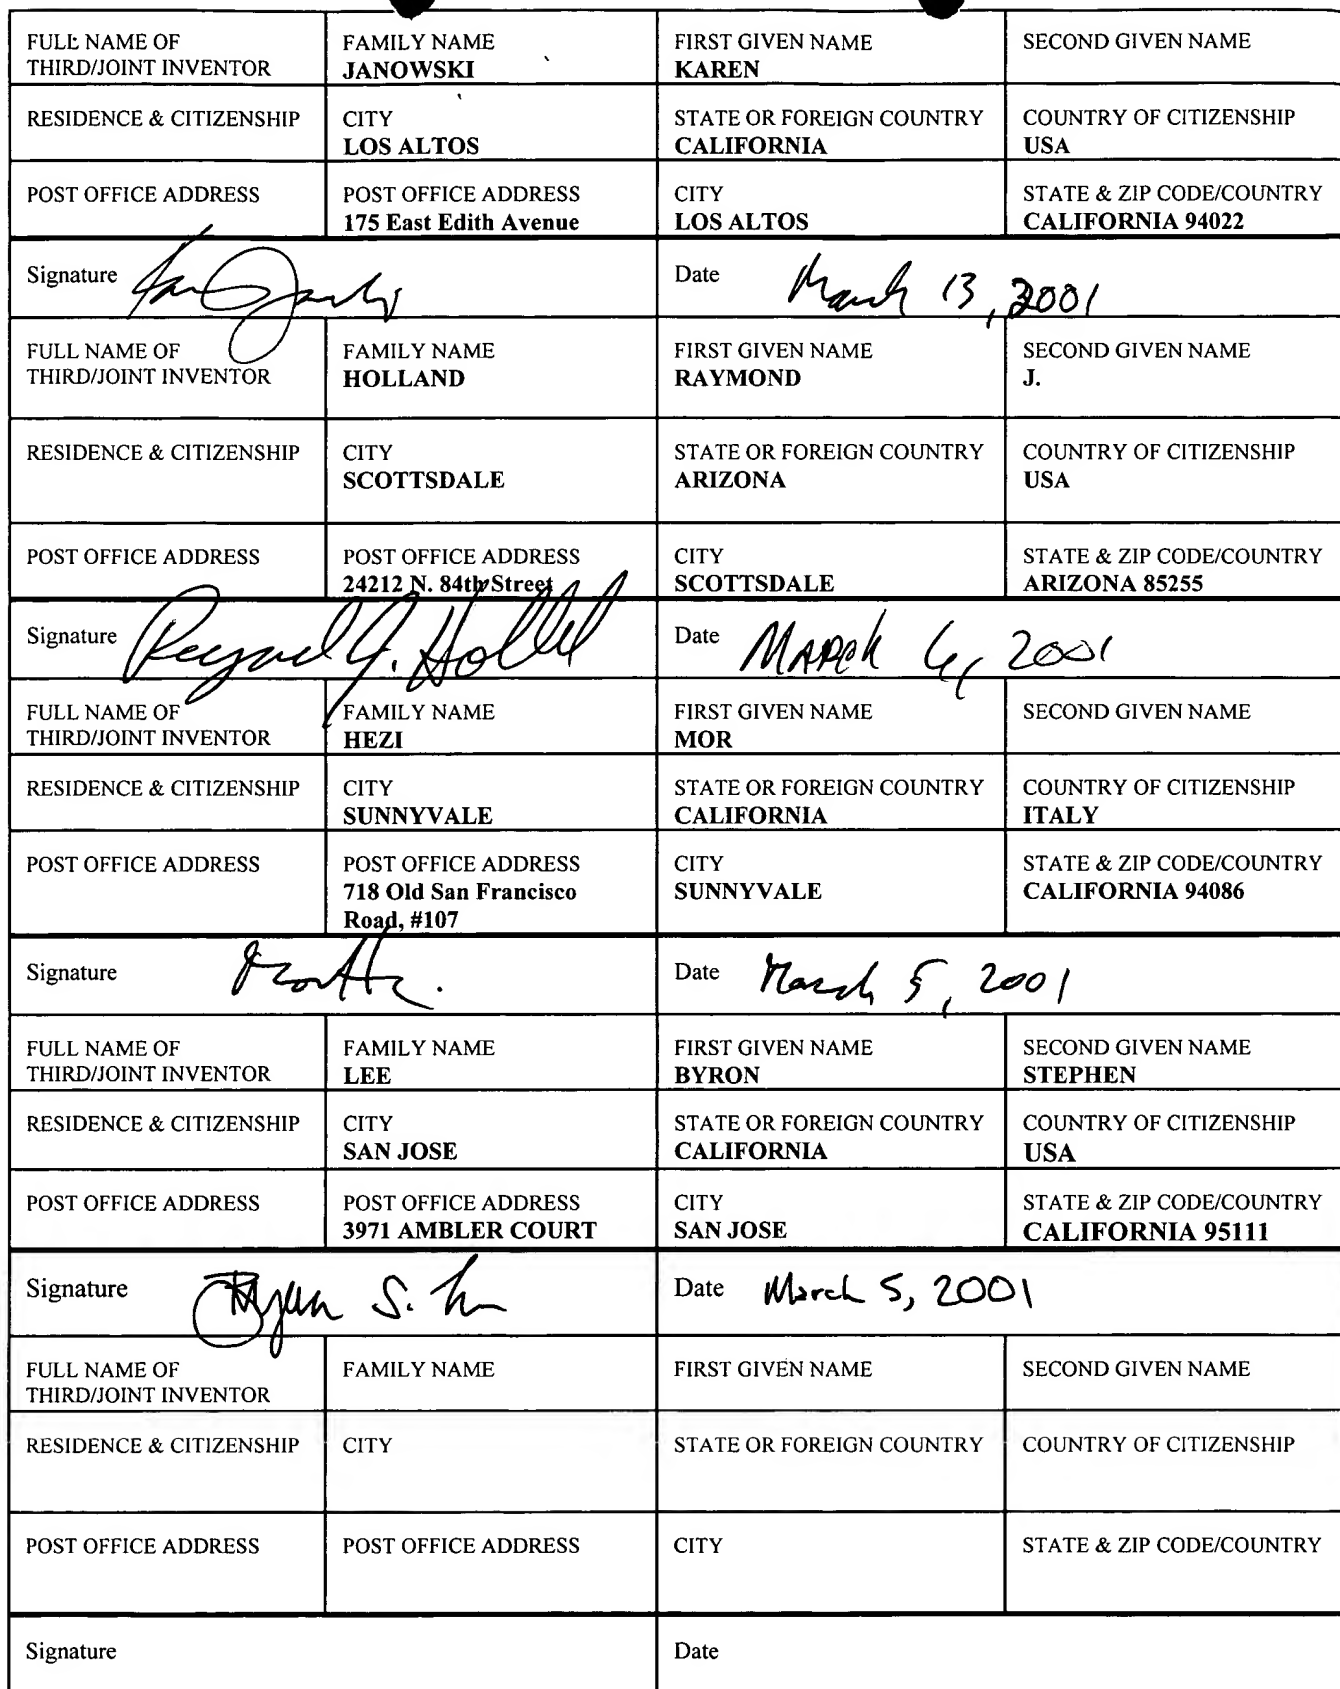 FULL NAME OF THIRD/JOINT INVENTOR
FAMILY NAME
JANOWSKI
FIRST GIVEN NAME
KAREN
SECOND GIVEN NAME
RESIDENCE & CITIZENSHIP
CITY
LOS ALTOS
STATE OR FOREIGN COUNTRY
CALIFORNIA
COUNTRY OF CITIZENSHIP
USA
POST OFFICE ADDRESS
POST OFFICE ADDRESS
175 East Edith Avenue
CITY
LOS ALTOS
STATE & ZIP CODE/COUNTRY
CALIFORNIA 94022
Signature
Date March 13, 2001
FULL NAME OF
THIRD/JOINT INVENTOR
FAMILY NAME
HOLLAND
FIRST GIVEN NAME
RAYMOND
SECOND GIVEN NAME
J.
RESIDENCE & CITIZENSHIP
CITY
SCOTTSDALE
STATE OR FOREIGN COUNTRY
ARIZONA
COUNTRY OF CITIZENSHIP
USA
POST OFFICE ADDRESS
POST OFFICE ADDRESS
24212 N. 84th Street
CITY
SCOTTSDALE
STATE & ZIP CODE/COUNTRY
ARIZONA 85255
Signature Raymond J. Holland
Date MARCH 6, 2001
FULL NAME OF
THIRD/JOINT INVENTOR
FAMILY NAME
HEZI
FIRST GIVEN NAME
MOR
SECOND GIVEN NAME
RESIDENCE & CITIZENSHIP
CITY
SUNNYVALE
STATE OR FOREIGN COUNTRY
CALIFORNIA
COUNTRY OF CITIZENSHIP
ITALY
POST OFFICE ADDRESS
POST OFFICE ADDRESS
718 Old San Francisco
Road, #107
CITY
SUNNYVALE
STATE & ZIP CODE/COUNTRY
CALIFORNIA 94086
Signature
Date March 5, 2001
FULL NAME OF
THIRD/JOINT INVENTOR
FAMILY NAME
LEE
FIRST GIVEN NAME
BYRON
SECOND GIVEN NAME
STEPHEN
RESIDENCE & CITIZENSHIP
CITY
SAN JOSE
STATE OR FOREIGN COUNTRY
CALIFORNIA
COUNTRY OF CITIZENSHIP
USA
POST OFFICE ADDRESS
POST OFFICE ADDRESS
3971 AMBLER COURT
CITY
SAN JOSE
STATE & ZIP CODE/COUNTRY
CALIFORNIA 95111
Signature Byron S.
Date March 5, 2001
FULL NAME OF
THIRD/JOINT INVENTOR
FAMILY NAME
FIRST GIVEN NAME
SECOND GIVEN NAME
RESIDENCE & CITIZENSHIP
CITY
STATE OR FOREIGN COUNTRY
COUNTRY OF CITIZENSHIP
POST OFFICE ADDRESS
POST OFFICE ADDRESS
CITY
STATE & ZIP CODE/COUNTRY
Signature
Date